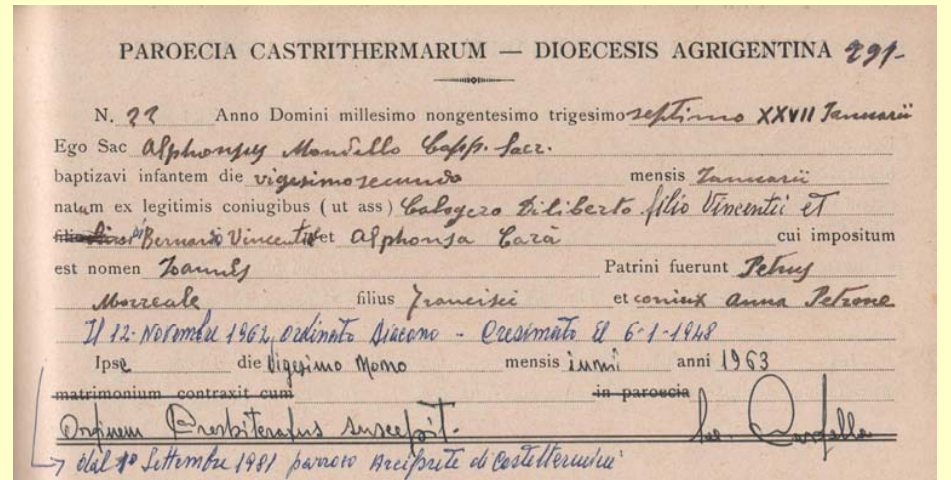 PAROECIA CASTRITHERMARUM — DIOECESIS AGRIGENTINA 291-
N. 22 Anno Domini millesimo nongentesimo trigesimo septimo XXVII Januarii
Ego Sac Alphonsus Mondello Capp. Sacr.
baptizavi infantem die vigesimo secundo mensis Januarii
natum ex legitimis coniugibus ( ut ass ) Calogero Diliberto filio Vincentii et
Bernardo Vincentii et Alphonsa Carà cui impositum
est nomen Joannes Patrini fuerunt Petrus
Morreale filius Francisci et coniux Anna Petrone
Il 12- Novembre 1962, ordinato Diacono - Cresimato il 6-1-1948
Ipse die Vigesimo Nono mensis iunii anni 1963
matrimonium contraxit cum in paroecia
Ordinem Presbiteratus suscepit. Sac.
dal 1° Settembre 1981 parroco Arciprete di Casteltermini